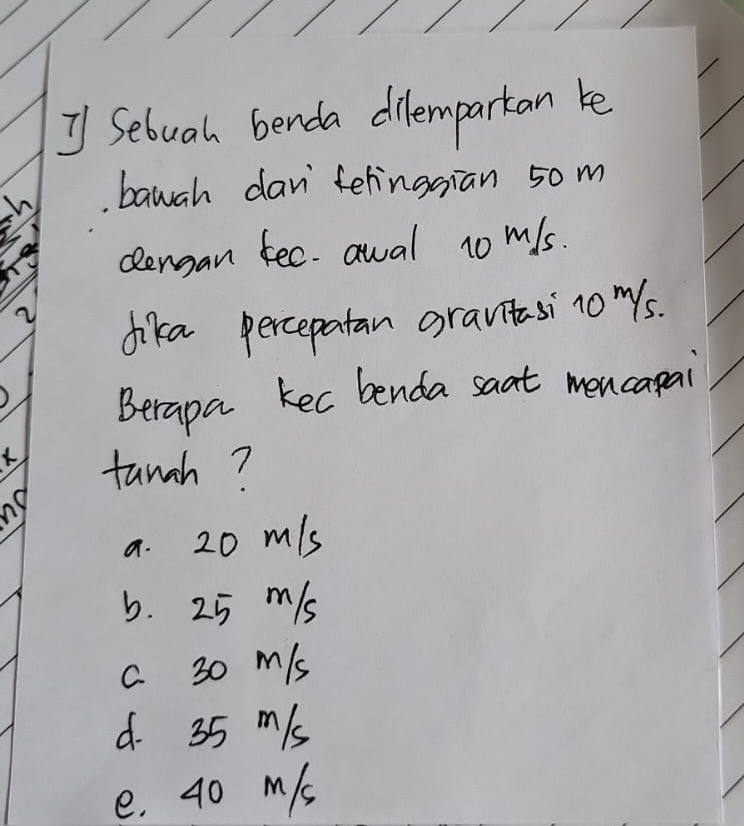 7] Sebuah benda dilemparkan ke
bawah dari ketinggian 50 m
dengan kec. awal 10 m/s.
Jika percepatan gravitasi 10 m/s.
Berapa kec benda saat mencapai
tanah ?
a. 20 m/s
b. 25 m/s
c 30 m/s
d. 35 m/s
e. 40 m/s